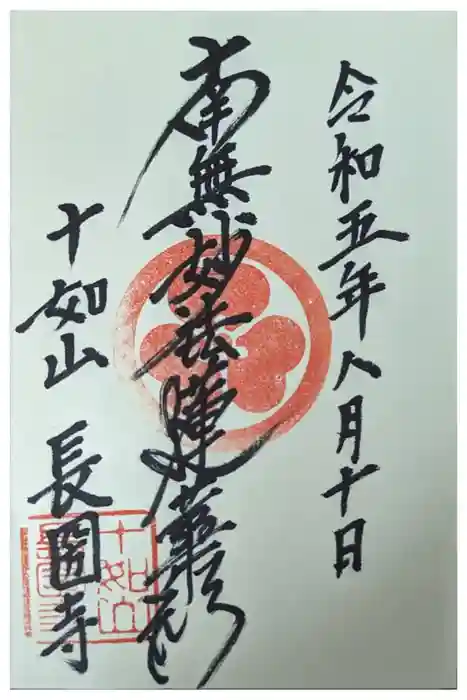 令和五年八月十日
南無妙法蓮華経
十如山 長圀寺
十如山